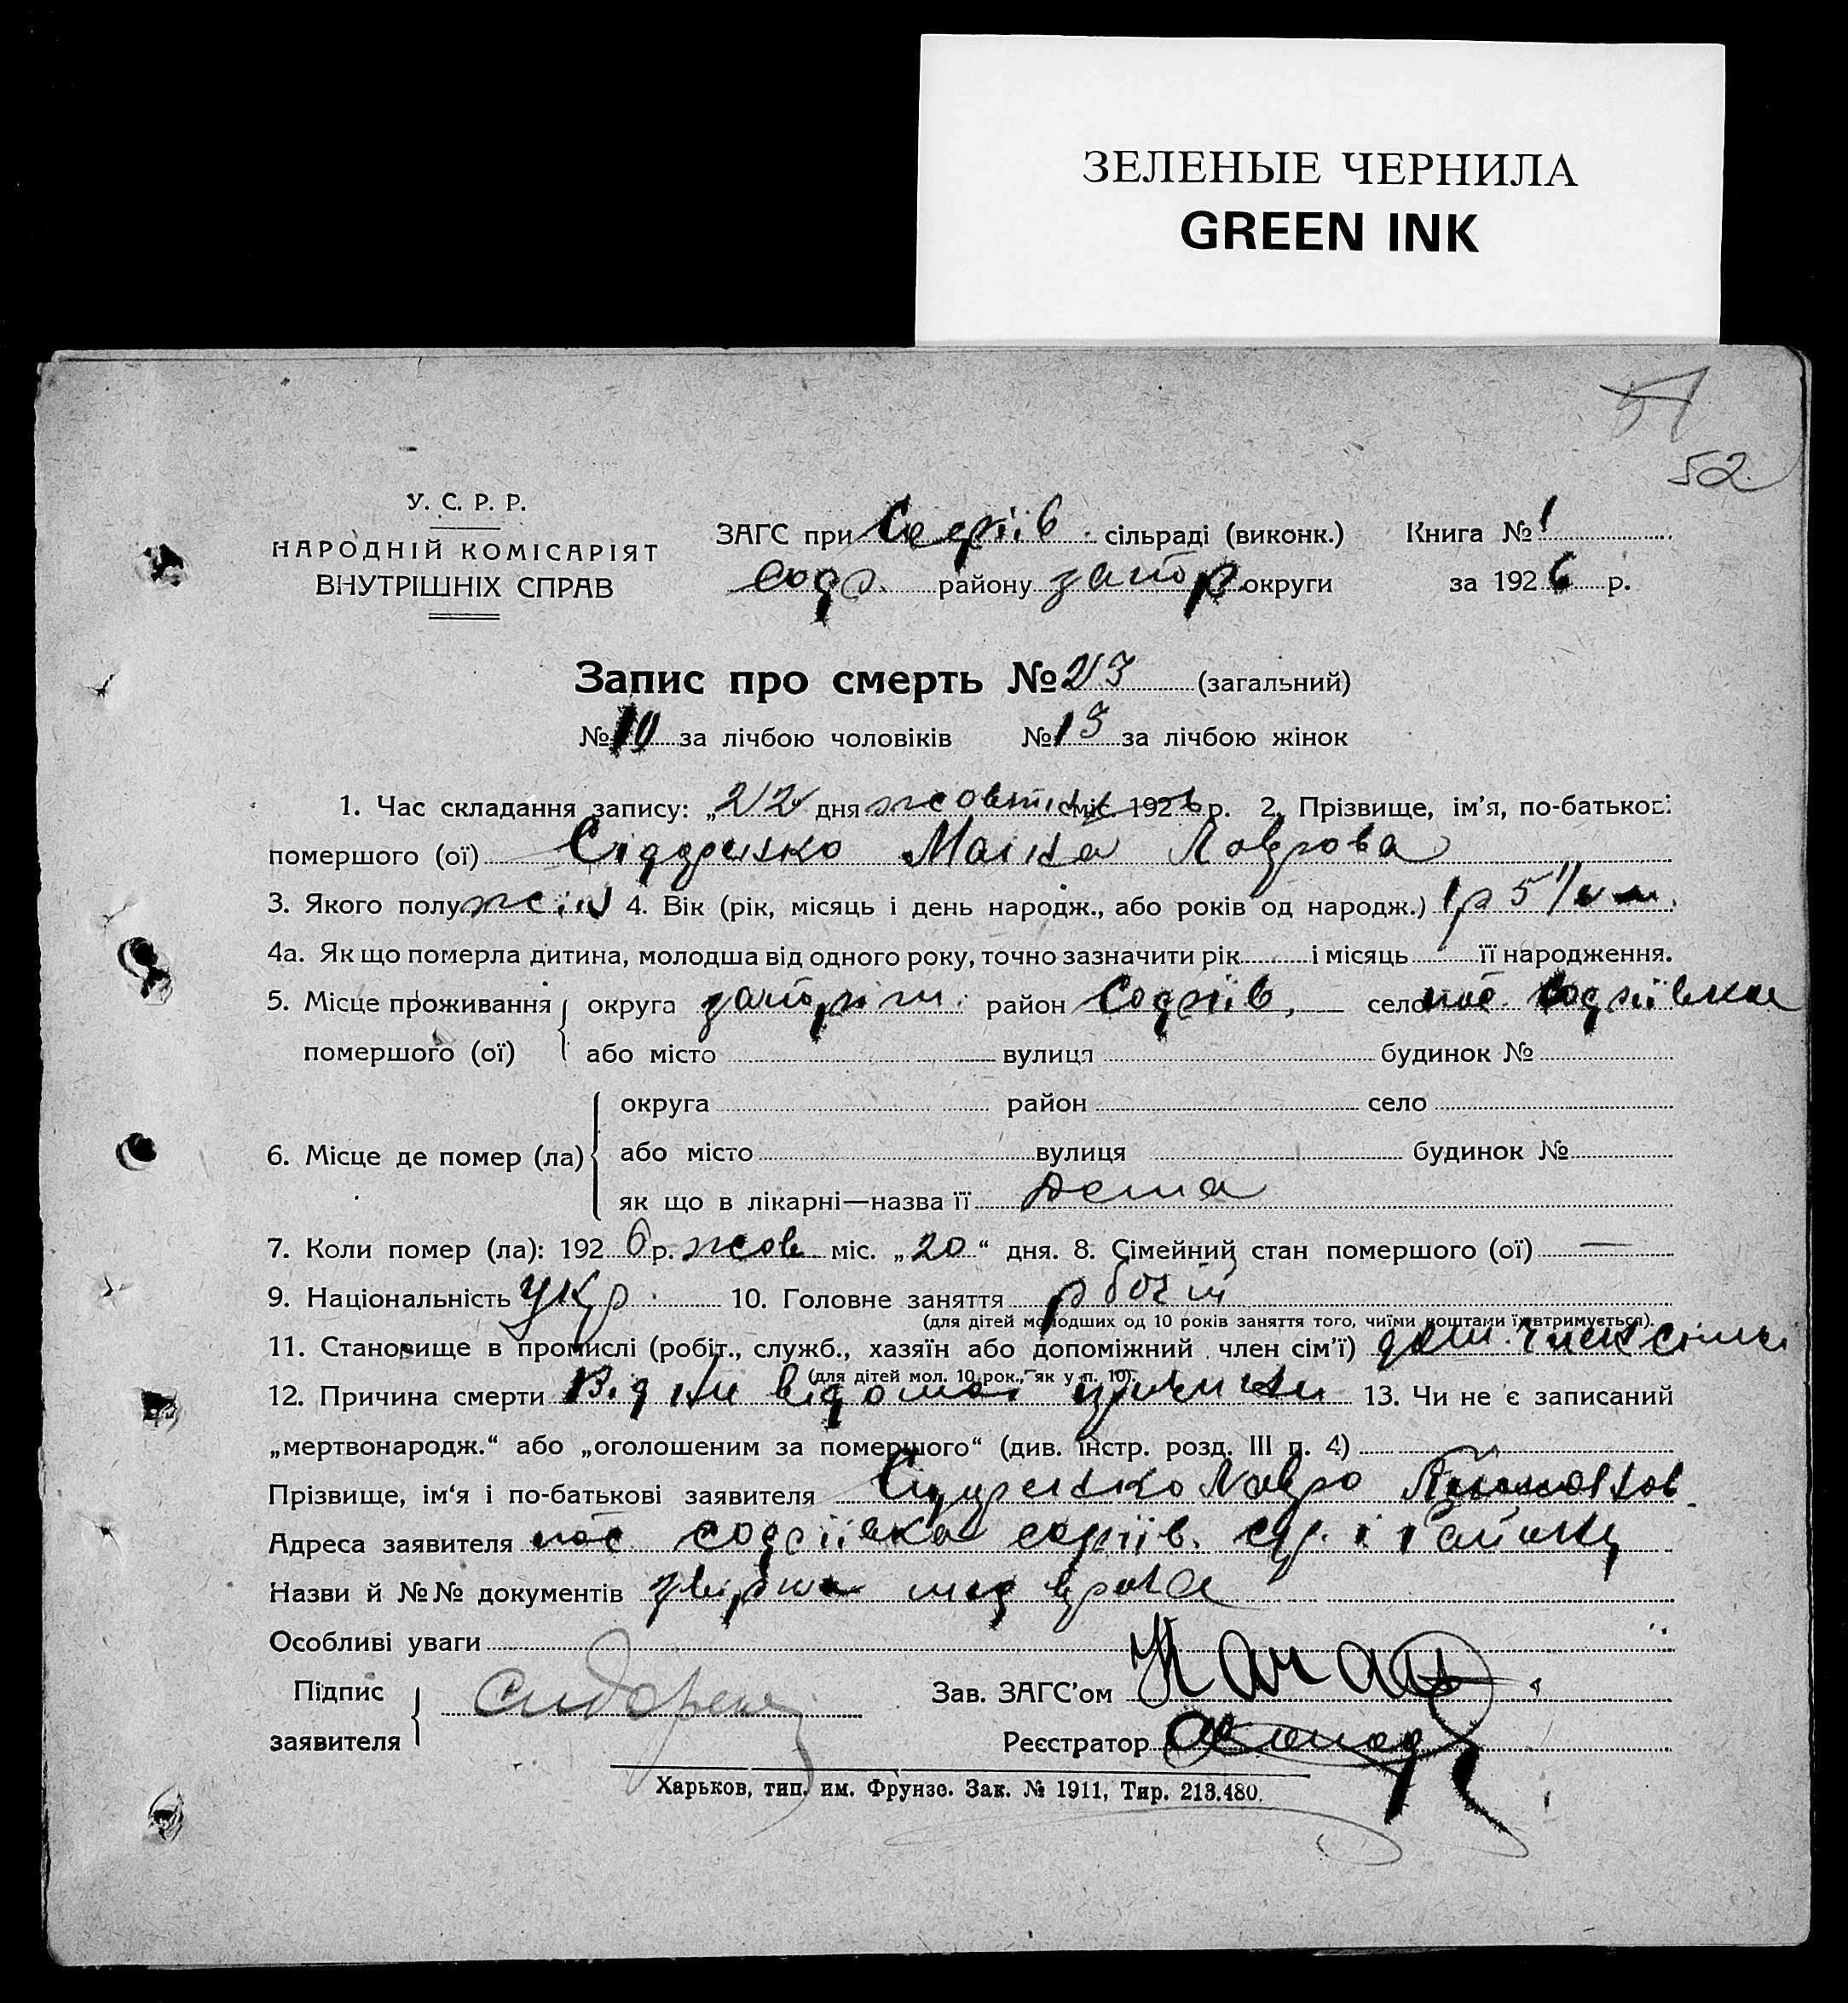 ЗЕЛЕНЫЕ ЧЕРНИЛА
GREEN INK
52
У. С. Р. Р.
НАРОДНІЙ КОМІСАРІЯТ
ВНУТРІШНІХ СПРАВ
ЗАГС при Софіїв. сільраді (виконк.) Книга № 1
Соф. району запор округи за 1926 р.
Запис про смерть № 23 (загальний)
№ 10 за лічбою чоловіків № 13 за лічбою жінок
1. Час складання запису: „22 дня жовтня міс. 1926 р. 2. Прізвище, ім'я, по-батькові
помершого (ої) Сідоренко Лаврова
3. Якого полу жін 4. Вік (рік, місяць і день народж., або років од народж.) 1 р 5
4а. Як що померла дитина, молодша від одного року, точно зазначити рік і місяць її народження.
5. Місце проживання округа запоріж. район Софіїв, село пос Софіївка
помершого (ої) або місто вулиця будинок №
округа район село
6. Місце де помер (ла) або місто вулиця будинок №
як що в лікарні—назва її дома
7. Коли помер (ла): 1926 р. жов міс. „20“ дня. 8. Сімейний стан помершого (ої) —
9. Національність Укр. 10. Головне заняття рбочій
(для дітей молодших од 10 років заняття того, чиїми коштами їх втримується).
11. Становище в промислі (робіт., служб., хазяїн або допоміжний член сім'ї) доп. член сімьї
(для дітей мол. 10 рок., як у п. 10).
12. Причина смерти Від не відомої причини 13. Чи не є записаний
„мертвонародж.“ або „оголошеним за помершого“ (див. інстр. розд. III п. 4)
Прізвище, ім'я і по-батькові заявителя Сидоренко Лавро
Адреса заявителя пос Софіївка софіїв. с/р. і району
Назви й №№ документів
Особливі уваги
Підпис
заявителя
Сидорен
Зав. ЗАГС'ом
Реєстратор
Харьков, тип. им. Фрунзе. Зак. № 1911, Тир. 213.480.